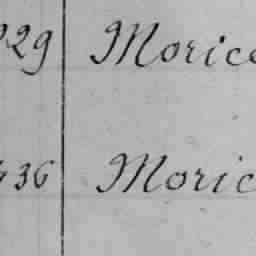 229 Morice
436 Moric